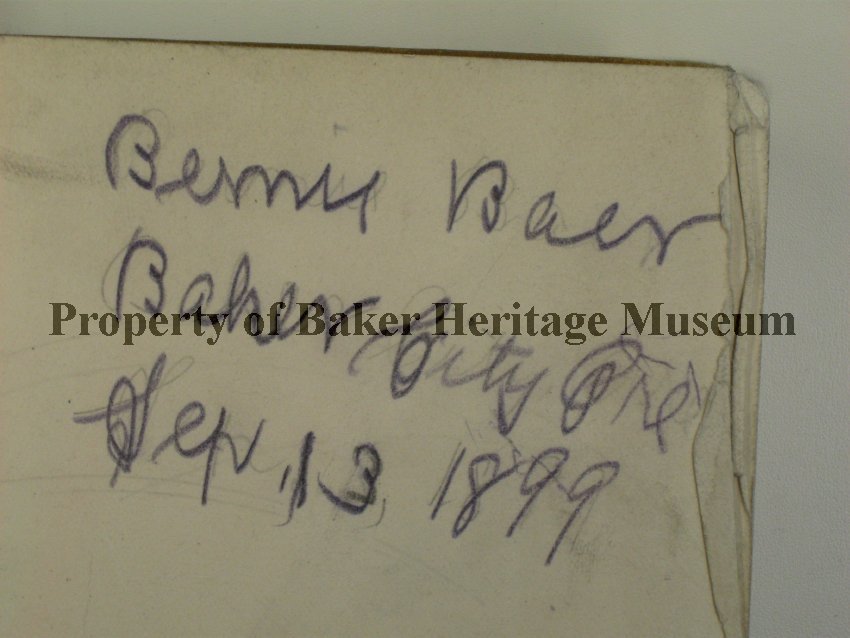 Bernie Baer
Baker City Ore
Property of Baker Heritage Museum
Sep, 13, 1899